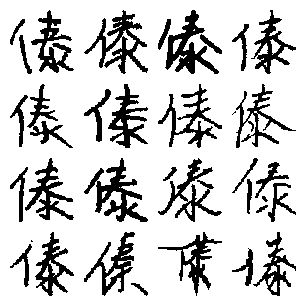 傣傣傣傣
傣傣傣傣
傣傣傣傣
傣傣傣傣